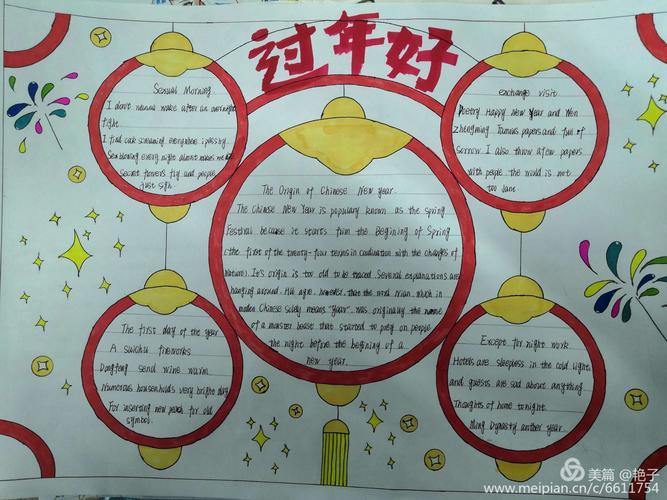 过年好
Sexual Morning
I don't wanna wake after an overnight
fight
I find cuck screaming everywhere i pass by.
Sea blowing every night almost makes me
Secret flowers fly and people
just sigh
exchange visit
Poetry Happy New Year and Wen
Zhengming Famous papers and full of
sorrow I also throw a few papers
with people the world is not
too Jane
The Origin of Chinese New year
The Chinese New Year is populary known as the spring
Festival because it starts fum the Begining of Spring
(the first of the twenty-four terms in coodination with the changes of
Nature). It's origin is too old to be traced. Several explanations are
hanging around. All agre, however, that the word Nian, which in
modern Chinese solely means "Year", was originally the name
of a monster beast that started to prey on people
the night before the begining of a
new year.
The first day of the year
A suichu fireworks
Dongfeng send wine warm
Numerous households very bright day
For inserting new peach for old
symbol.
Except for night work
Hotels are sleepless in the cold light
and guests are sad about anything
Thoughts of home tonight
Ming Dynasty another year
美篇 @艳子
www.meipian.cn/c/6611754